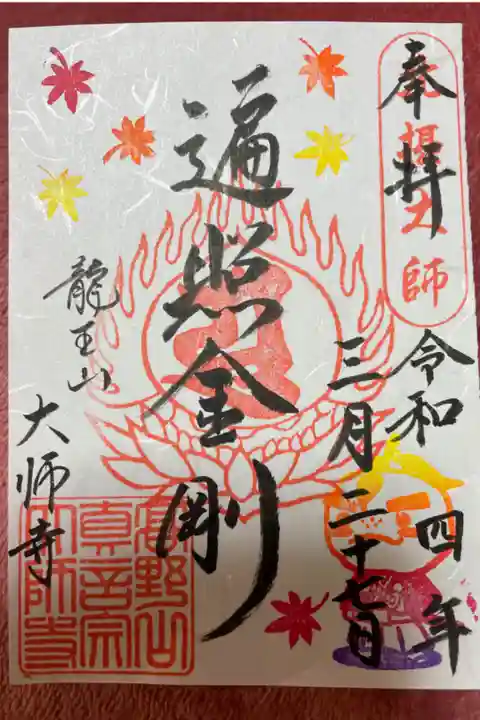 奉拝
厄除大師
令和四年
三月二十七日
遍照金剛
龍王山
大师寺
高野山
真言宗
大師寺